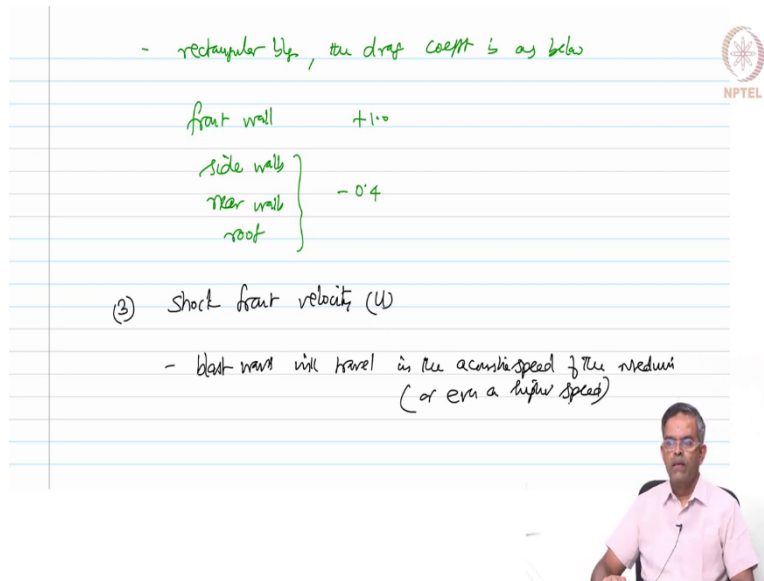 - rectangular bldg, the drag coefft is as below
NPTEL
front wall +1.0
side walls
rear walls } -0.4
roof
(3) Shock front velocity (U)
- blast wave will travel in the acoustic speed of the medium
(or even a higher speed)